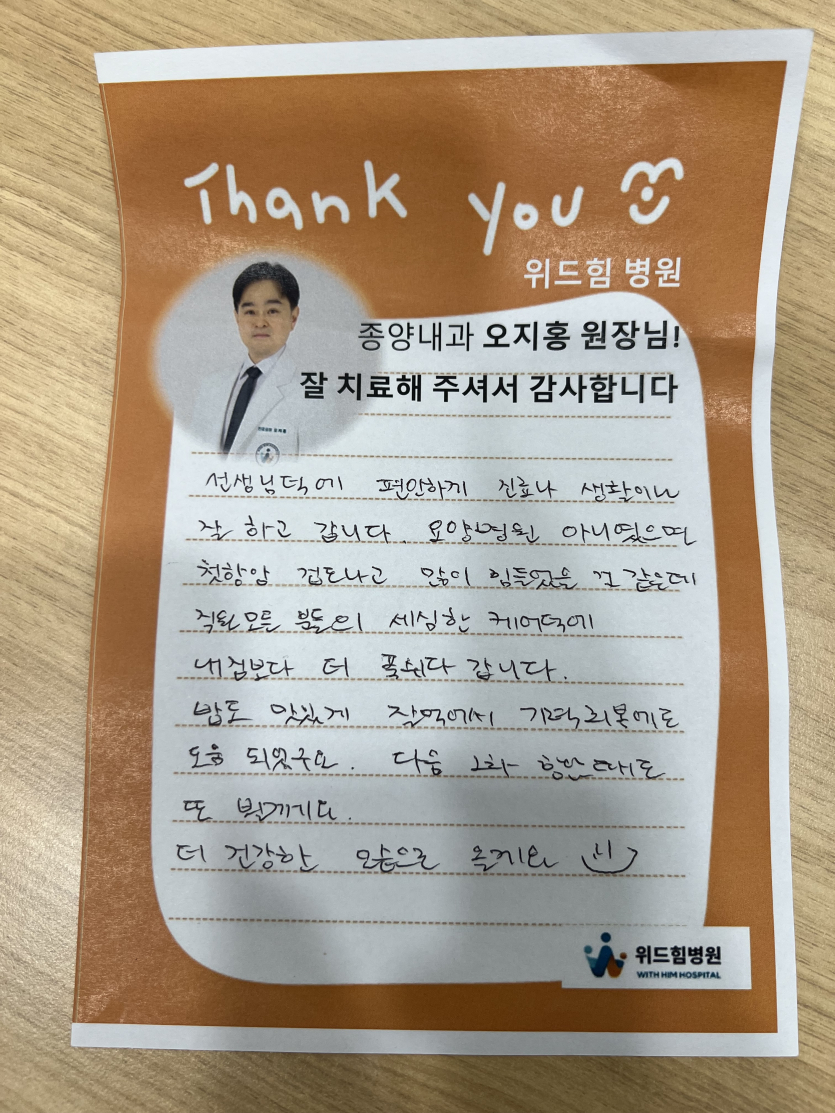 Thank you
위드힘 병원
종양내과 오지홍 원장님!
잘 치료해 주셔서 감사합니다
선생님덕에 편안하게 진료나 생활이나
잘 하고 갑니다. 요양병원 아니였으면
첫항암 겁도나고 많이 힘들었을 것 같은데
직원모든 분들의 세심한 케어덕에
내집보다 더 푹쉬다 갑니다.
밥도 맛있게 잘먹어서 기력회복에도
도움 되었구요. 다음 2차 항암때도
또 뵐께요.
더 건강한 모습으로 올게요
위드힘병원
WITH HIM HOSPITAL